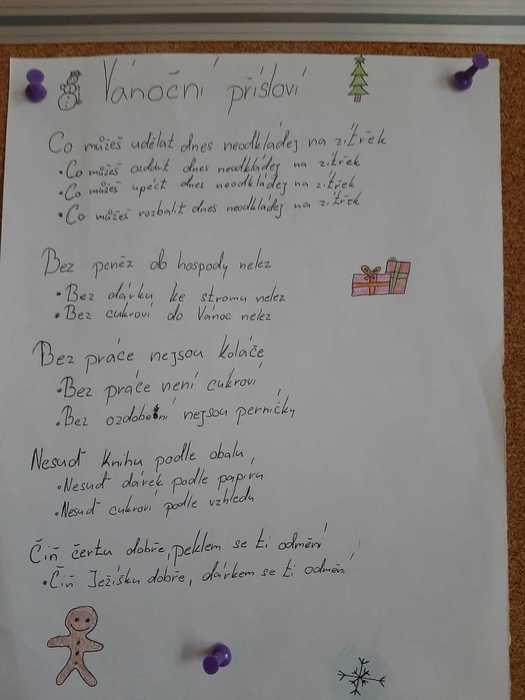 Vánoční přísloví
Co můžeš udělat dnes neodkládej na zítřek
• Co můžeš ozdobit dnes neodkládej na zítřek
• Co můžeš upéct dnes neodkládej na zítřek
• Co můžeš rozbalit dnes neodkládej na zítřek
Bez peněz do hospody nelez
• Bez dárku ke stromu nelez
• Bez cukroví do Vánoc nelez
Bez práce nejsou koláče
• Bez práce není cukroví
• Bez ozdobení nejsou perníčky
Nesuď knihu podle obalu
• Nesuď dárek podle papíru
• Nesuď cukroví podle vzhledu
Čiň čertu dobře, peklem se ti odmění
• Čiň Ježíšku dobře, dárkem se ti odmění